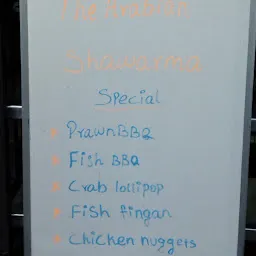 The Arabian
Shawarma
Special
Prawn BBQ
Fish BBQ
Crab lollipop
Fish fingan
Chicken nuggets